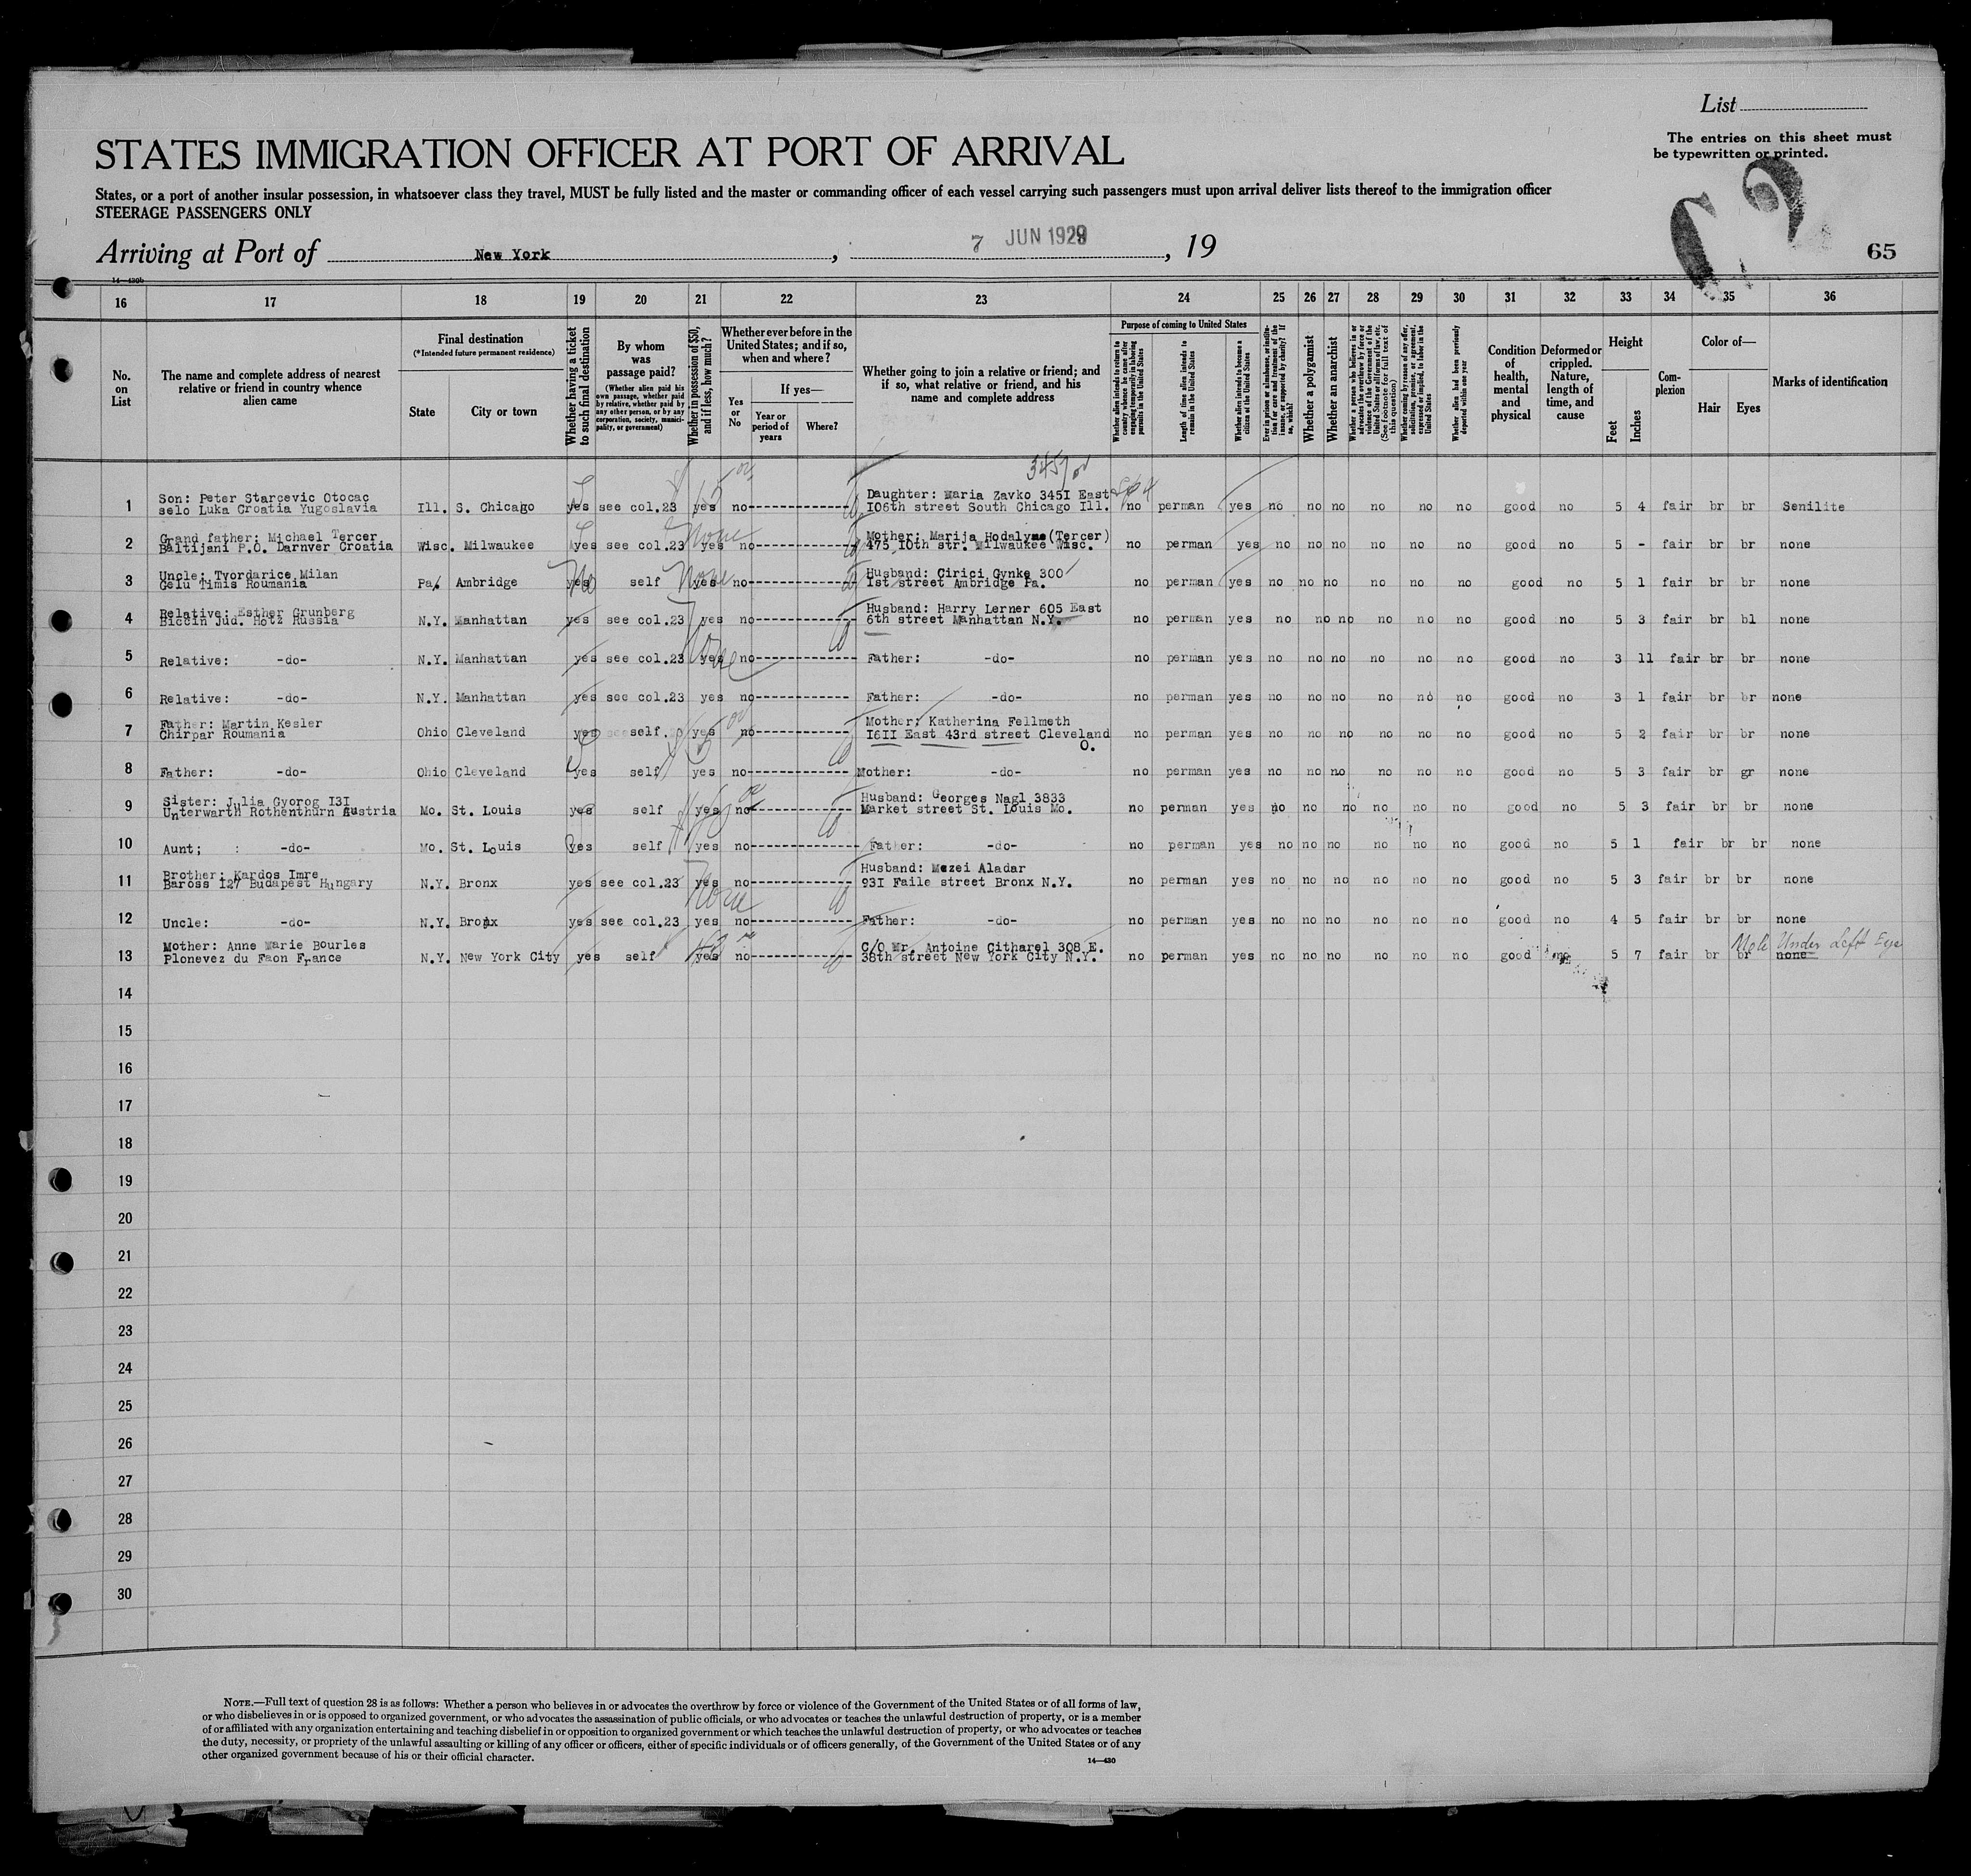 List
The entries on this sheet must
be typewritten or printed.
STATES IMMIGRATION OFFICER AT PORT OF ARRIVAL
States, or a port of another insular possession, in whatsoever class they travel, MUST be fully listed and the master or commanding officer of each vessel carrying such passengers must upon arrival deliver lists thereof to the immigration officer
STEERAGE PASSENGERS ONLY
Arriving at Port of New York , 7 JUN 1929 , 19
65
16 17 18 19 20 21 22 23 24 25 26 27 28 29 30 31 32 33 34 35 36
No. on List
The name and complete address of nearest relative or friend in country whence alien came
Final destination
(*Intended future permanent residence)
State
City or town
Whether having a ticket to such final destination
By whom was passage paid?
(Whether alien paid his own passage, whether paid by relative, whether paid by any other person, or by any corporation, society, municipality, or government)
Whether in possession of $50, and if less, how much?
Whether ever before in the United States; and if so, when and where?
If yes—
Yes or No
Year or period of years
Where?
Whether going to join a relative or friend; and if so, what relative or friend, and his name and complete address
Purpose of coming to United States
Whether alien intends to return to country whence he came after engaging temporarily in laboring pursuits in the United States
Length of time alien intends to remain in the United States
Whether alien intends to become a citizen of the United States
Ever in prison or almshouse, or institution for care and treatment of the insane, or supported by charity? If so, which?
Whether a polygamist
Whether an anarchist
Whether a person who believes in or advocates the overthrow by force or violence of the Government of the United States or all forms of law, etc. (See footnote for full text of this question)
Whether coming by reason of any offer, solicitation, promise, or agreement, expressed or implied, to labor in the United States
Whether alien had been previously deported within one year
Condition of health, mental and physical
Deformed or crippled. Nature, length of time, and cause
Height
Feet
Inches
Complexion
Color of—
Hair
Eyes
Marks of identification
3457
1 Son: Peter Starcevic Otocac
selo Luka Croatia Yugoslavia Ill. S. Chicago yes see col.23 yes no Daughter: Maria Zavko 3451 East
106th street South Chicago Ill. no perman yes no no no no no no good no 5 4 fair br br Senilite
2 Grand father: Michael Tercer
Baltijani P.O. Darnver Croatia Wisc. Milwaukee yes see col.23 None yes no Mother: Marija Hodalyme (Tercer)
475 10th str. Milwaukee Wisc. no perman yes no no no no no no good no 5 - fair br br none
3 Uncle: Tvordarice Milan
Celu Timis Roumania Pa. Ambridge yes No self None yes no Husband: Cirici Gynke 300
1st street Ambridge Pa. no perman yes no no no no no no good no 5 1 fair br br none
4 Relative: Esther Grunberg
Biccin Jud. Hotz Russia N.Y. Manhattan yes see col.23 yes no Husband: Harry Lerner 605 East
6th street Manhattan N.Y. no perman yes no no no no no no good no 5 3 fair br bl none
5 Relative: -do- N.Y. Manhattan yes see col.23 yes None no Father: -do- no perman yes no no no no no no good no 3 11 fair br br none
6 Relative: -do- N.Y. Manhattan yes see col.23 yes no Father: -do- no perman yes no no no no no no good no 3 1 fair br br none
7 Father: Martin Kesler
Chirpar Roumania Ohio Cleveland yes self. yes no Mother: Katherina Fellmeth
1611 East 43rd street Cleveland
O. no perman yes no no no no no no good no 5 2 fair br br none
8 Father: -do- Ohio Cleveland yes self yes no Mother: -do- no perman yes no no no no no no good no 5 3 fair br gr none
9 Sister: Julia Gyorog 131
Unterwarth Rothenthurn Austria Mo. St. Louis yes self yes no Husband: Georges Nagl 3833
Market street St. Louis Mo. no perman yes no no no no no no good no 5 3 fair br br none
10 Aunt; : -do- Mo. St. Louis yes self yes no Father: -do- no perman yes no no no no no no good no 5 1 fair br br none
11 Brother: Kardos Imre
Baross 127 Budapest Hungary N.Y. Bronx yes see col.23 yes no Husband: Mezei Aladar
931 Faile street Bronx N.Y. no perman yes no no no no no no good no 5 3 fair br br none
12 Uncle: -do- N.Y. Bronx yes see col.23 None yes no Father: -do- no perman yes no no no no no no good no 4 5 fair br br none
13 Mother: Anne Marie Bourles
Plonevez du Faon France N.Y. New York City yes self yes no C/O Mr. Antoine Citharel 308 E.
38th street New York City N.Y. no perman yes no no no no no no good no 5 7 fair br br none Mole Under Left Eye
14
15
16
17
18
19
20
21
22
23
24
25
26
27
28
29
30
NOTE.—Full text of question 28 is as follows: Whether a person who believes in or advocates the overthrow by force or violence of the Government of the United States or of all forms of law,
or who disbelieves in or is opposed to organized government, or who advocates the assassination of public officials, or who advocates or teaches the unlawful destruction of property, or is a member
of or affiliated with any organization entertaining and teaching disbelief in or opposition to organized government or which teaches the unlawful destruction of property, or who advocates or teaches
the duty, necessity, or propriety of the unlawful assaulting or killing of any officer or officers, either of specific individuals or of officers generally, of the Government of the United States or of any
other organized government because of his or their official character.
14—430